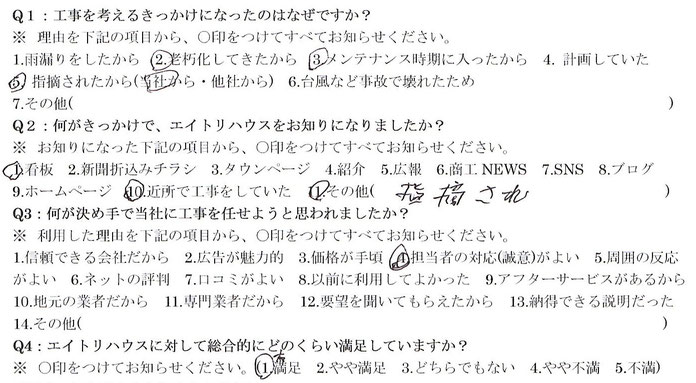 Q1：工事を考えるきっかけになったのはなぜですか？
※ 理由を下記の項目から、〇印をつけてすべてお知らせください。
1.雨漏りをしたから 2.老朽化してきたから 3.メンテナンス時期に入ったから 4. 計画していた
5. 指摘されたから(当社から・他社から) 6.台風など事故で壊れたため
7.その他( )
Q2：何がきっかけで、エイトリハウスをお知りになりましたか？
※ お知りになった下記の項目から、〇印をつけてすべてお知らせください。
1.看板 2.新聞折込みチラシ 3.タウンページ 4.紹介 5.広報 6.商工 NEWS 7.SNS 8.ブログ
9.ホームページ 10.近所で工事をしていた 11.その他( 指摘され )
Q3：何が決め手で当社に工事を任せようと思われましたか？
※ 利用した理由を下記の項目から、〇印をつけてすべてお知らせください。
1.信頼できる会社だから 2.広告が魅力的 3.価格が手頃 4.担当者の対応(誠意)がよい 5.周囲の反応
がよい 6.ネットの評判 7.口コミがよい 8.以前に利用してよかった 9.アフターサービスがあるから
10.地元の業者だから 11.専門業者だから 12.要望を聞いてもらえたから 13.納得できる説明だった
14.その他( )
Q4：エイトリハウスに対して総合的にどのくらい満足していますか？
※ 〇印をつけてお知らせください。(1.満足 2.やや満足 3.どちらでもない 4.やや不満 5.不満)